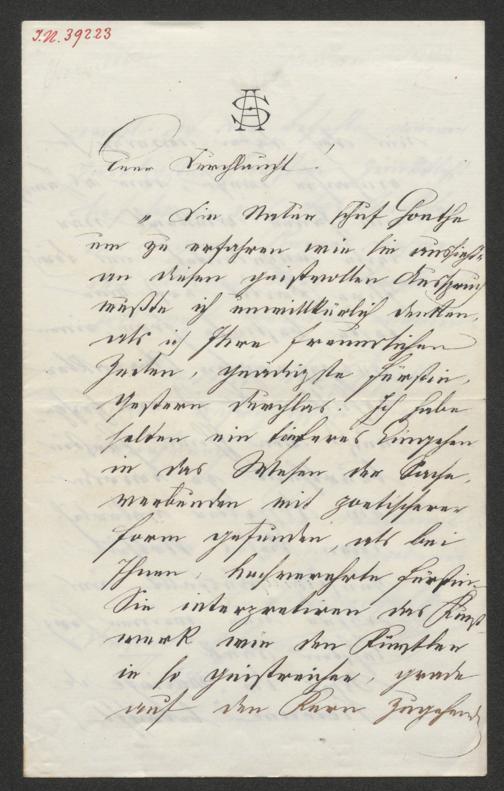 I.N. 39223
AS
Euer Durchlaucht!
„Die Natur schuf Goethe
um zu erfahren wie sie aussieht"
an diesen geistvollen Ausspruch
mußte ich unwillkürlich denken,
als ich Ihre freundlichen
Zeilen, gnädigste Fürstin,
gestern durchlas. Ich habe
selten ein tieferes Eingehen
in das Wesen der Sache,
verbunden mit poetischerer
Form gefunden, als bei
Ihnen, hochverehrte Fürstin.
Sie interpretiren das Kunst
werk wie den Künstler
in so geistreicher, grade
auf den Kern zugehend